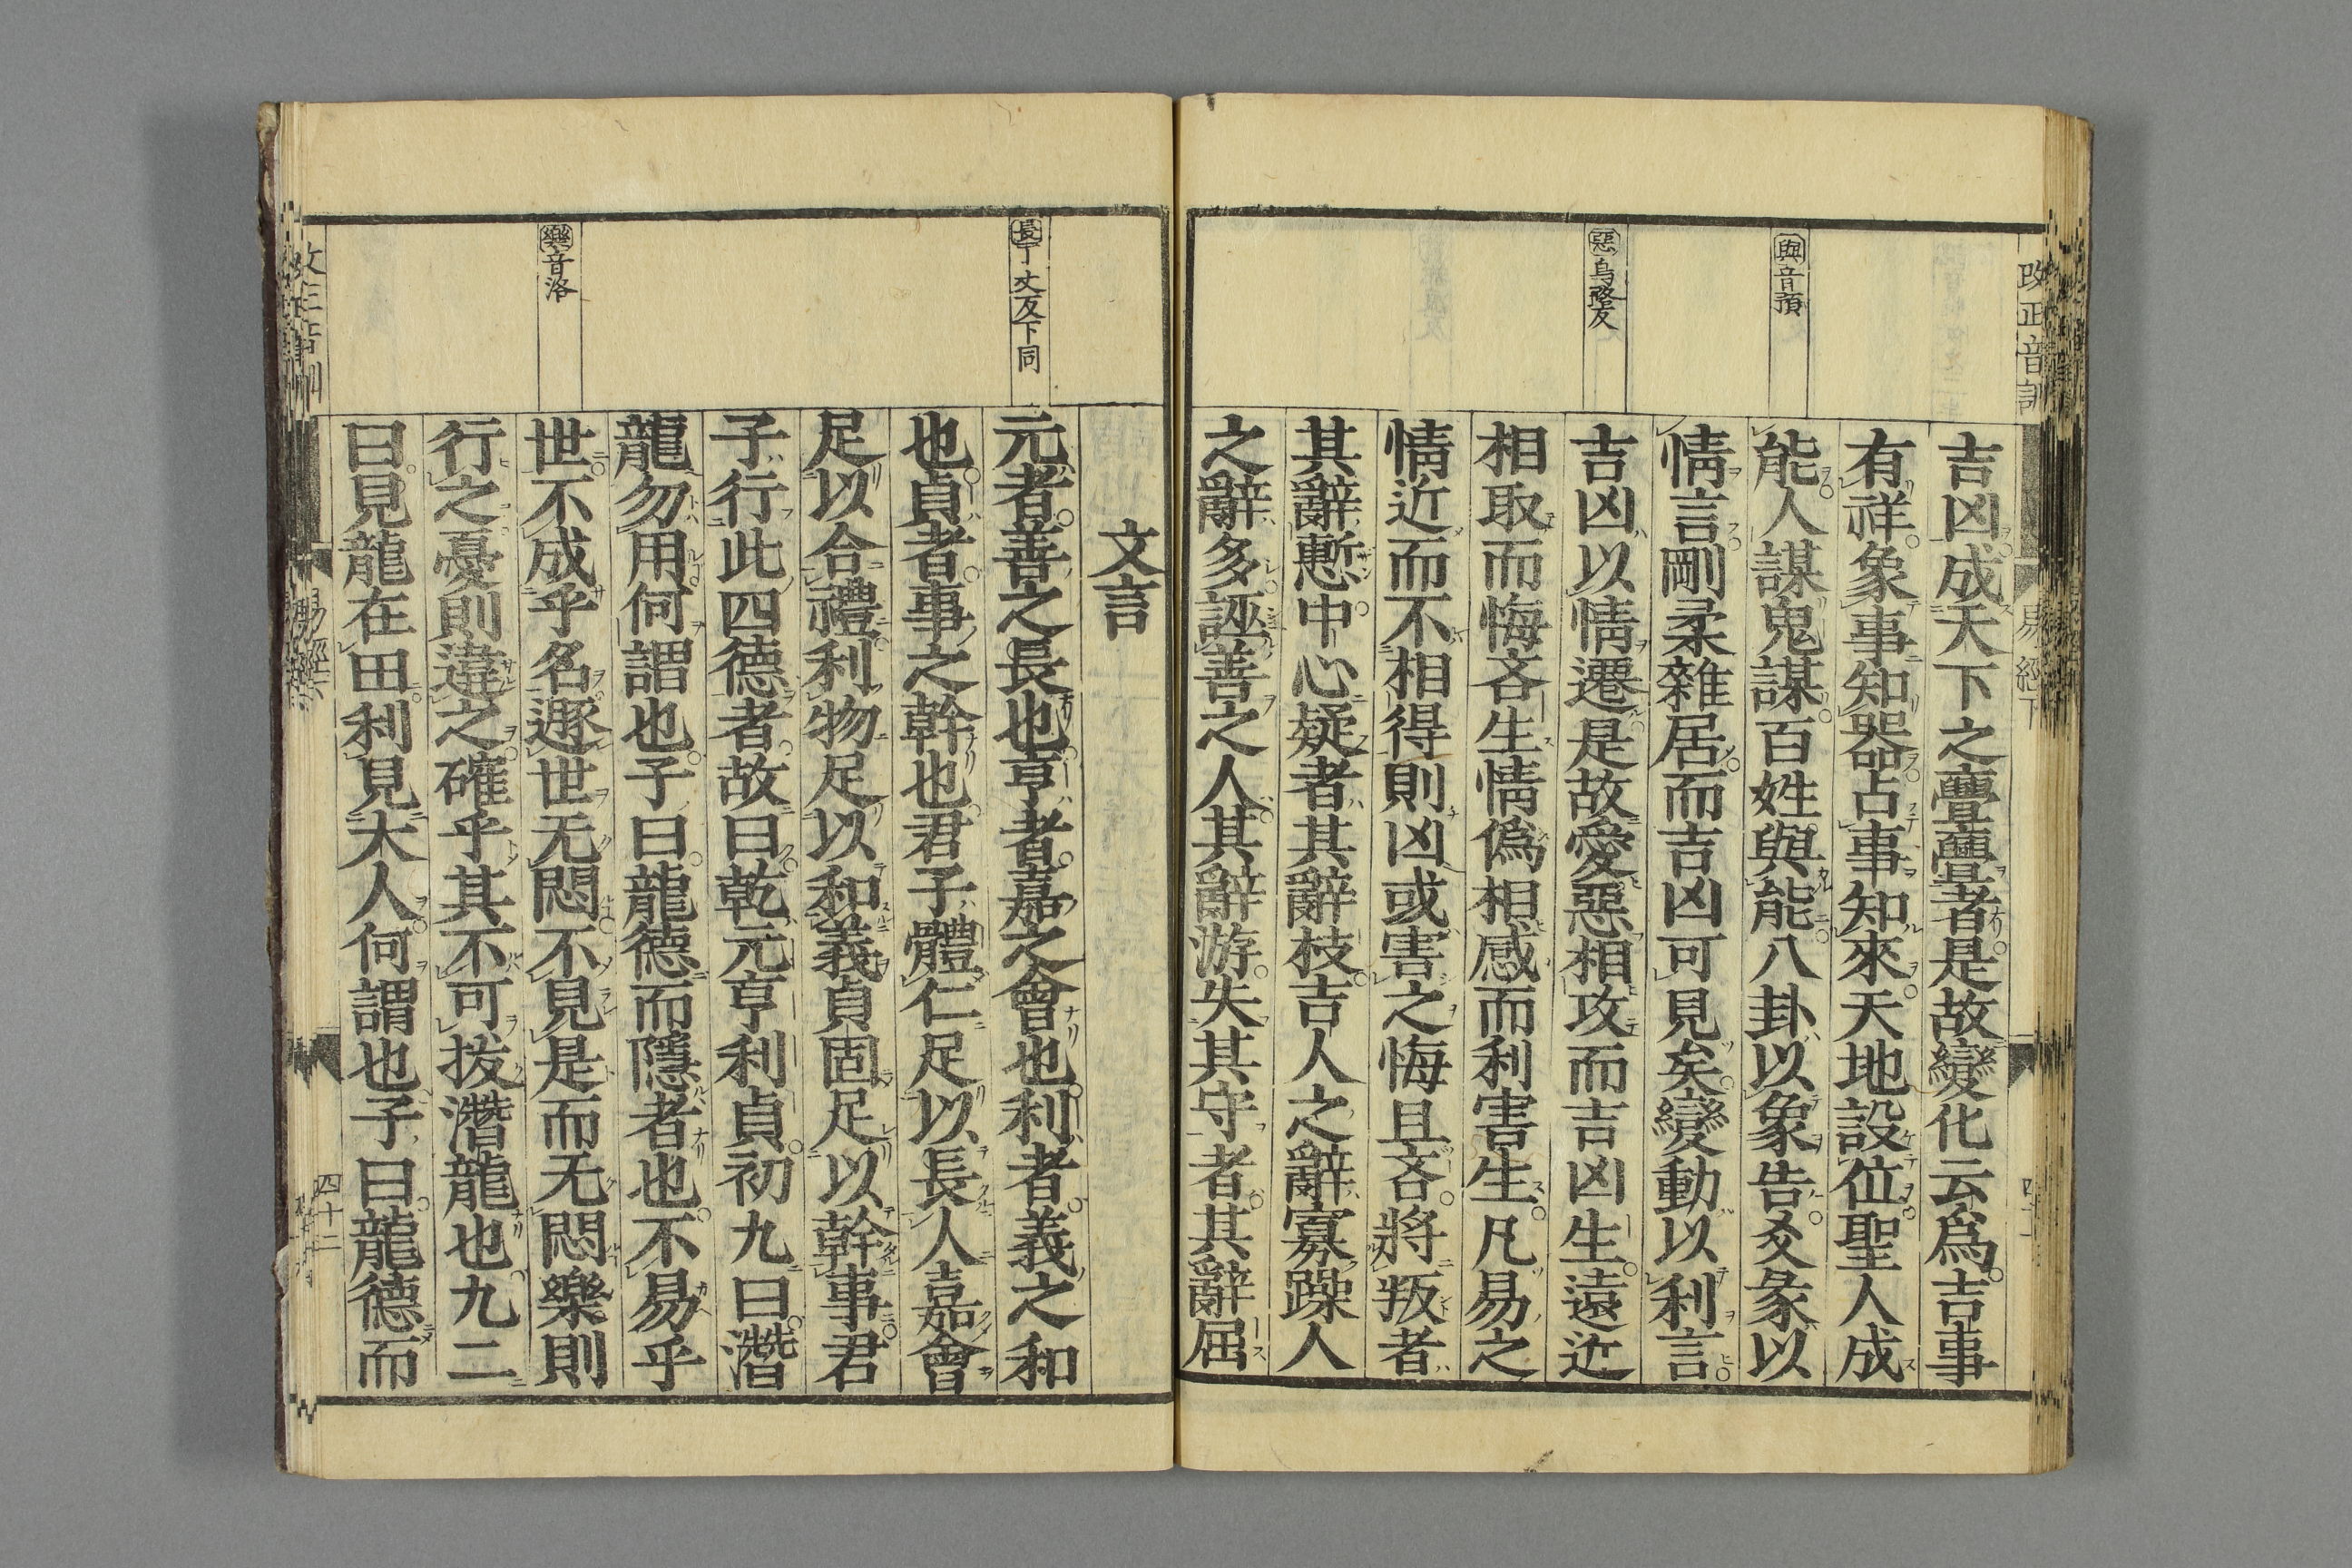 改正音訓
易經下
與音預
惡烏路反
吉凶成天下之亹亹者是故變化云爲吉事
有祥象事知器占事知來天地設位聖人成
能人謀鬼謀百姓與能八卦以象告爻彖以
情言剛柔雜居而吉凶可見矣變動以利言
吉凶以情遷是故愛惡相攻而吉凶生遠近
相取而悔吝生情僞相感而利害生凡易之
情近而不相得則凶或害之悔且吝將叛者
其辭慙中心疑者其辭枝吉人之辭寡躁人
之辭多誣善之人其辭游失其守者其辭屈
長丁丈反下同
樂音洛
文言
元者善之長也亨者嘉之會也利者義之和
也貞者事之幹也君子體仁足以長人嘉會
足以合禮利物足以和義貞固足以幹事君
子行此四德者故曰乾元亨利貞初九曰潛
龍勿用何謂也子曰龍德而隱者也不易乎
世不成乎名遯世无悶不見是而无悶樂則
行之憂則違之確乎其不可拔潛龍也九二
曰見龍在田利見大人何謂也子曰龍德而
四十二